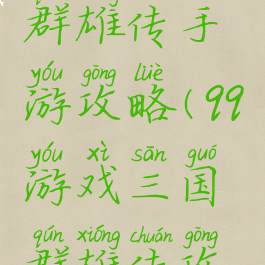 群雄传手
yóu gōng lüè
游攻略(99
yóu xì sān guó
游戏三国
qún xióng chuán gōng
群雄传攻